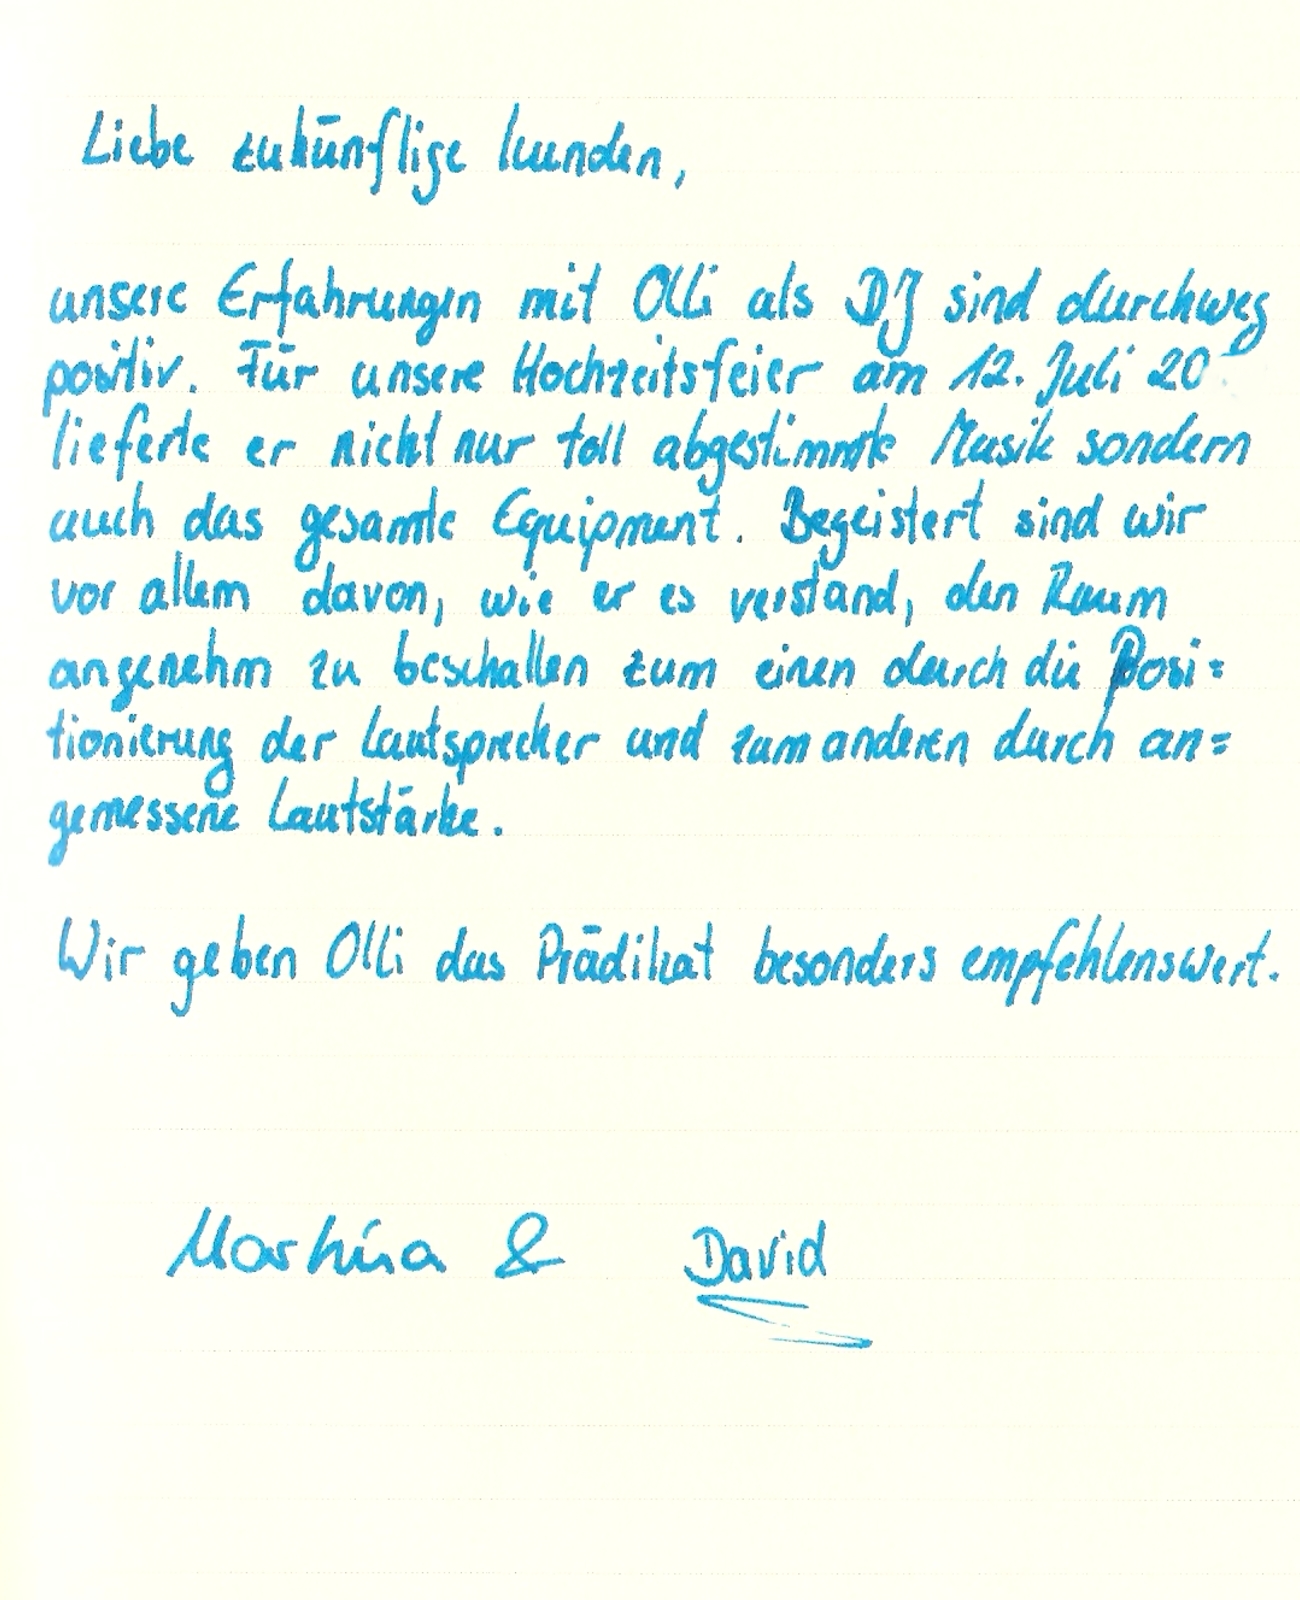 Liebe zukünftige Kunden,
unsere Erfahrungen mit Olli als DJ sind durchweg
positiv. Für unsere Hochzeitsfeier am 12. Juli 20
lieferte er nicht nur toll abgestimmte Musik sondern
auch das gesamte Equipment. Begeistert sind wir
vor allem davon, wie er es verstand, den Raum
angenehm zu beschallen zum einen durch die Posi=
tionierung der Lautsprecher und zum anderen durch an=
gemessene Lautstärke.
Wir geben Olli das Prädikat besonders empfehlenswert.
Martina & David